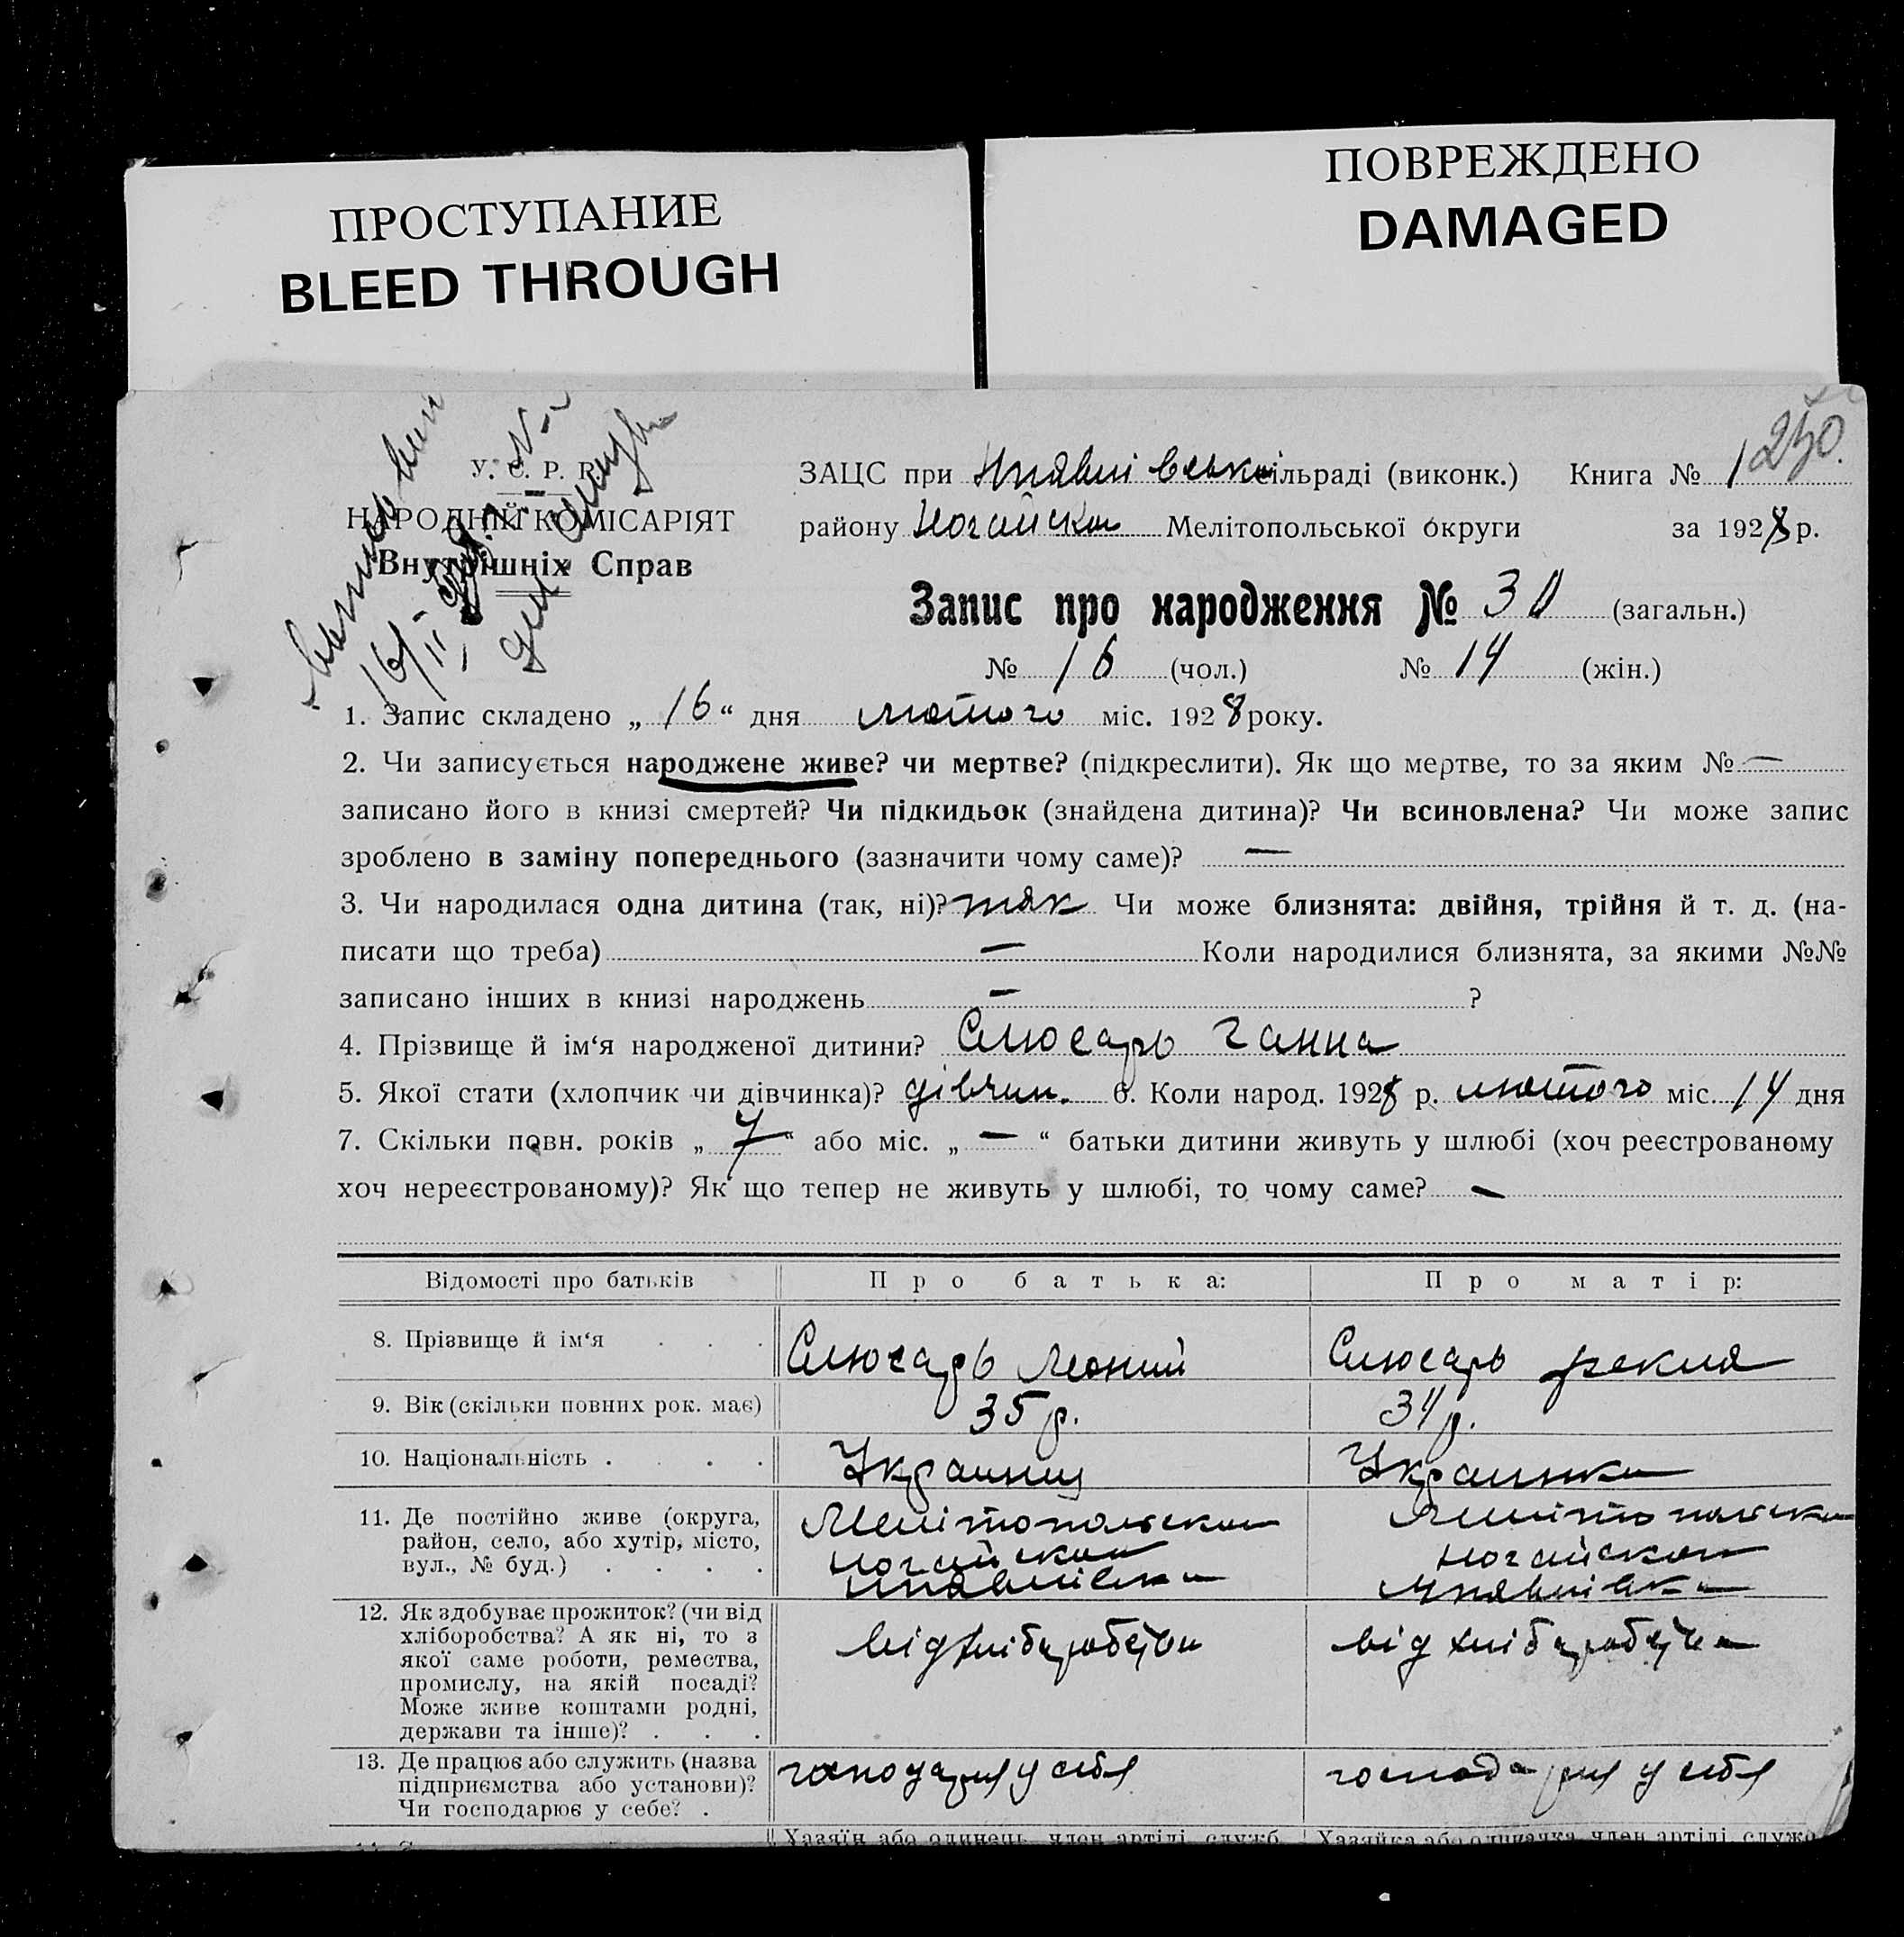 ПРОСТУПАНИЕ
BLEED THROUGH
ПОВРЕЖДЕНО
DAMAGED
250.
У. С. Р. Р.
НАРОДНІЙ КОМІСАРІЯТ
Внутрішніх Справ
16/II
ЗАЦС при сільраді (виконк.) Книга № 1
району Ногайськ Мелітопольської округи за 1928 р.
Запис про народження № 30 (загальн.)
№ 16 (чол.) № 14 (жін.)
1. Запис складено „ 16 “ дня лютого міс. 1928 року.
2. Чи записується народжене живе? чи мертве? (підкреслити). Як що мертве, то за яким № —
записано його в книзі смертей? Чи підкидьок (знайдена дитина)? Чи всиновлена? Чи може запис
зроблено в заміну попереднього (зазначити чому саме)? —
3. Чи народилася одна дитина (так, ні)? так Чи може близнята: двійня, трійня й т. д. (на-
писати що треба) — Коли народилися близнята, за якими №№
записано інших в книзі народжень — ?
4. Прізвище й ім‘я народженої дитини? Слюсарь Ганна
5. Якої стати (хлопчик чи дівчинка)? дівчин. 6. Коли народ. 1928 р. лютого міс. 14 дня
7. Скільки повн. років „ 7 “ або міс. „ — “ батьки дитини живуть у шлюбі (хоч реєстрованому
хоч нереєстрованому)? Як що тепер не живуть у шлюбі, то чому саме? —
Відомості про батьків Про батька: Про матір:
8. Прізвище й ім‘я . . . Слюсарь Слюсарь
9. Вік (скільки повних рок. має) 35 р. 34 р.
10. Національність . . . . Украинец Украинка
11. Де постійно живе (округа,
район, село, або хутір, місто,
вул., № буд.) . . . .
Мелітопольська
Ногайська
Мелітопольська
Ногайська
12. Як здобуває прожиток? (чи від
хліборобства? А як ні, то з
якої саме роботи, ремества,
промислу, на якій посаді?
Може живе коштами родні,
держави та інше)? . . .
від хліборобства
від хліборобства
13. Де працює або служить (назва
підприємства або установи)?
Чи господарює у себе? .
у себя
у себя
Хазяїн або одинець, член артілі, служб.
Хазяйка або одиначка, член артілі, служб